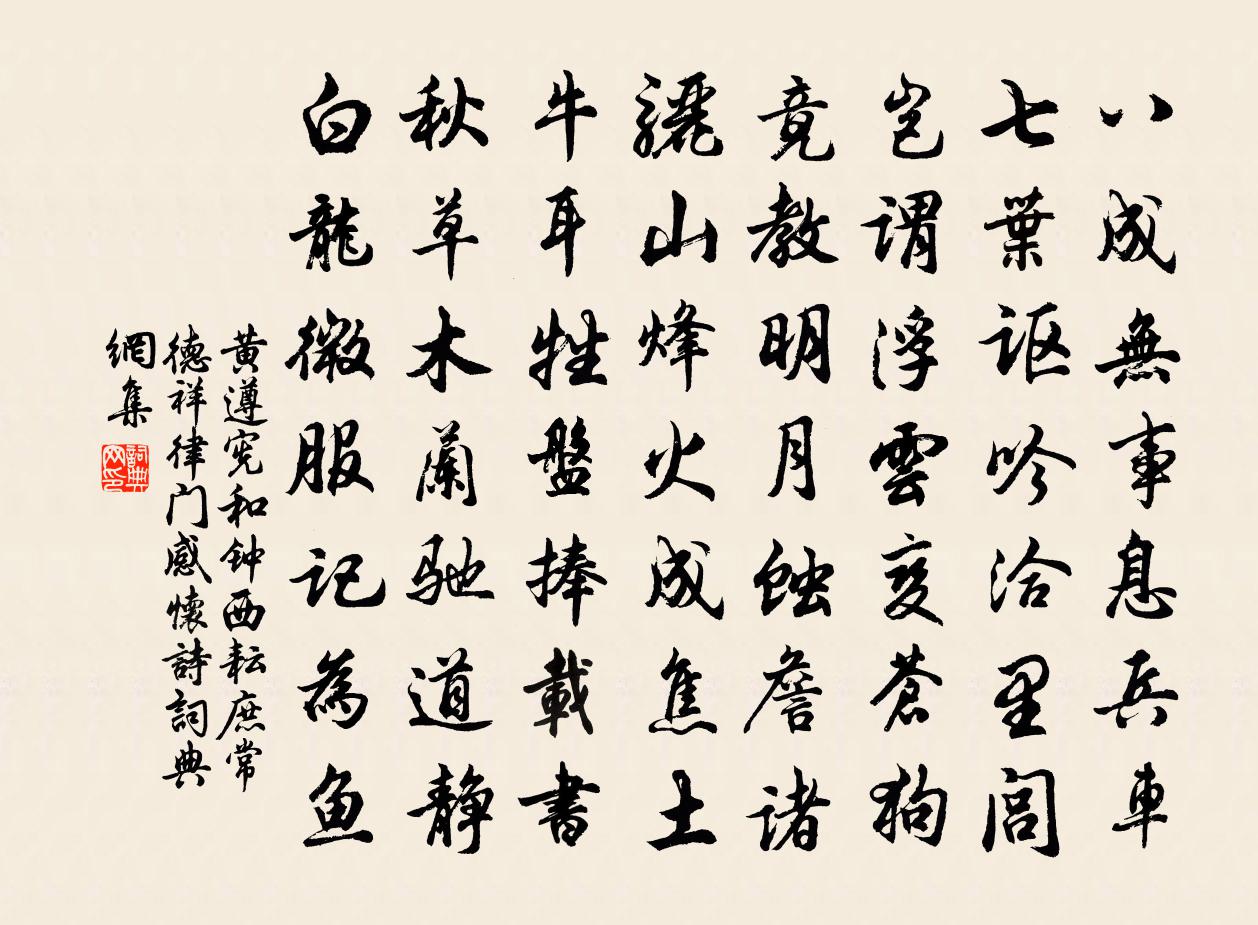 八成無事息兵車
七葉讴吟洽里闾
岂謂浮雲变蒼狗
竟教明月蚀詹诸
骊山烽火成焦土
牛耳牲盤捧載書
秋草木蘭驰道静
白龍微服记為鱼
黄遵宪和钟西耘庶常
德祥律门感懷詩詞典
網集
詞典网印